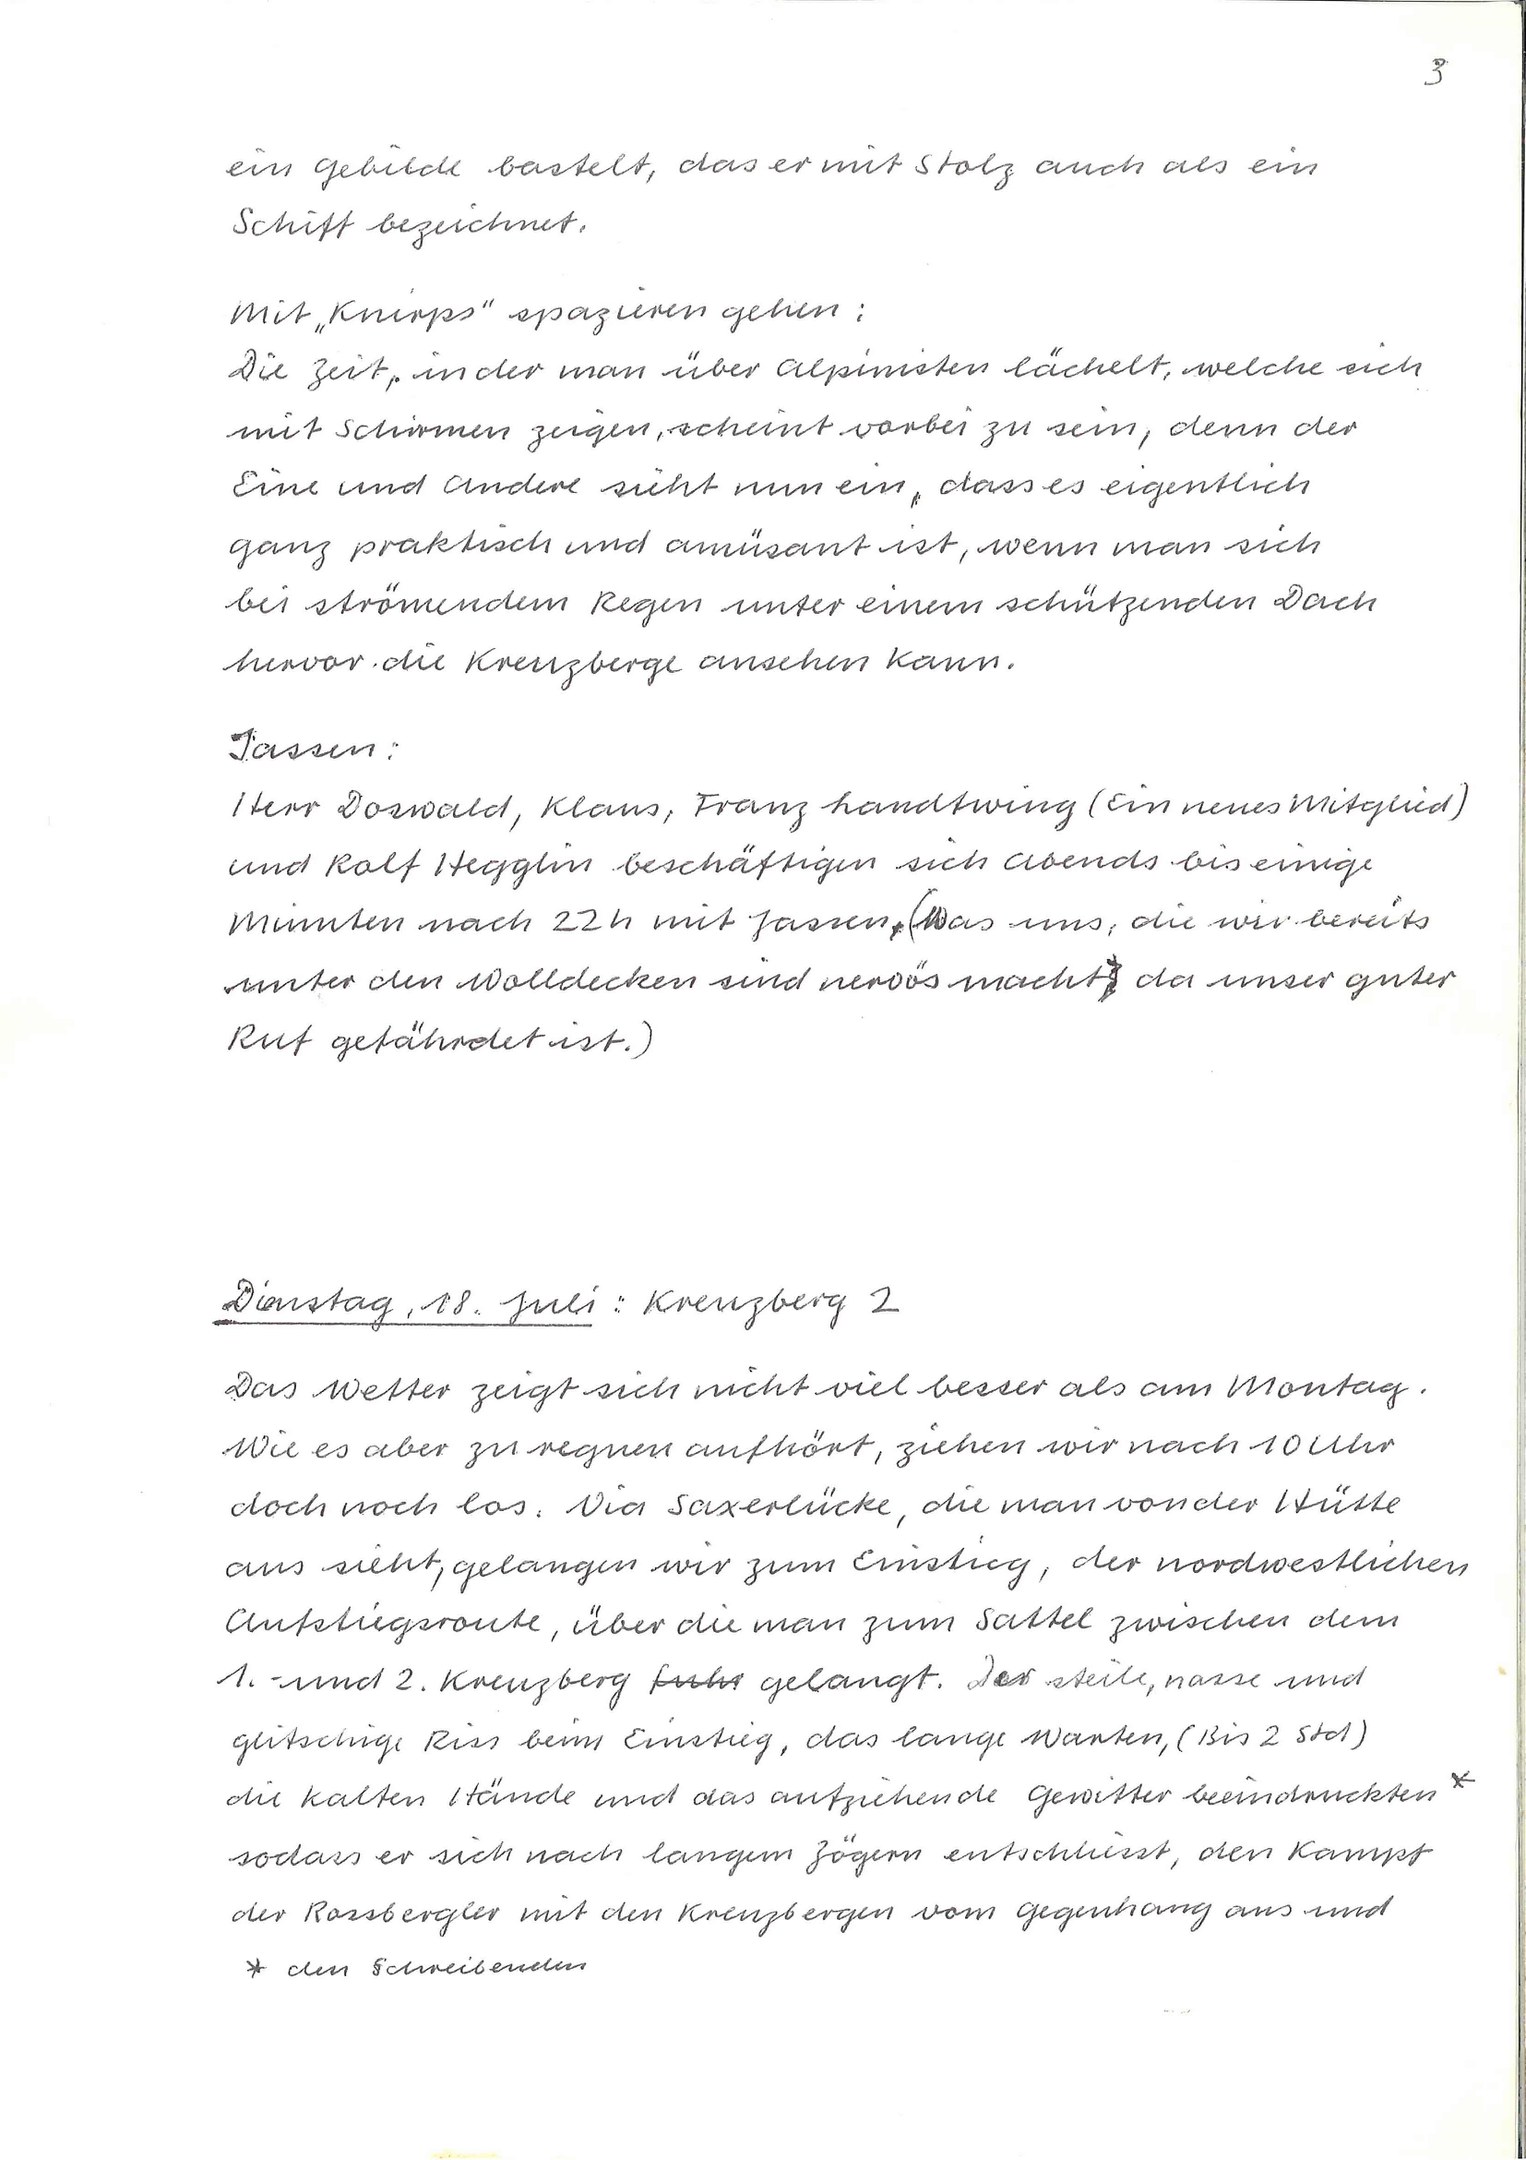 3
ein Gebilde bastelt, das er mit Stolz auch als ein
Schiff bezeichnet.
Mit „Knirps" spazieren gehen:
Die Zeit, in der man über Alpinisten lächelt, welche sich
mit Schirmen zeigen, scheint vorbei zu sein, denn der
Eine und Andere sieht nun ein, dass es eigentlich
ganz praktisch und amüsant ist, wenn man sich
bei strömendem Regen unter einem schützenden Dach
hervor die Kreuzberge ansehen kann.
Jassen:
Herr Doswald, Klaus, Franz Landtwing (Ein neues Mitglied)
und Rolf Hegglin beschäftigen sich Abends bis einige
Minuten nach 22h mit Jassen, (Was uns, die wir bereits
unter den Wolldecken sind nervös macht, da unser guter
Ruf gefährdet ist.)
Dienstag, 18. Juli: Kreuzberg 2
Das Wetter zeigt sich nicht viel besser als am Montag.
Wie es aber zu regnen aufhört, ziehen wir nach 10 Uhr
doch noch los. Via Saxerlücke, die man von der Hütte
aus sieht, gelangen wir zum Einstieg, der nordwestlichen
Aufstiegsroute, über die man zum Sattel zwischen dem
1. - und 2. Kreuzberg fuhr gelangt. Der steile, nasse und
glitschige Riss beim Einstieg, das lange Warten, (Bis 2 Std)
die kalten Hände und das aufziehende Gewitter beeindruckten *
sodass er sich nach langem Zögern entschliesst, den Kampf
der Rossbergler mit den Kreuzbergen vom Gegenhang aus und
* den Schreibenden